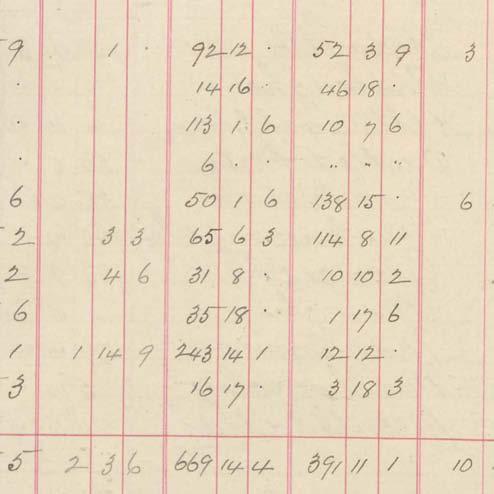 9 1 · 92 12 · 52 3 9 3
· 14 16 · 46 18 ·
· 113 1 6 10 7 6
· 6 · · " " "
6 50 1 6 138 15 · 6
2 3 3 65 6 3 114 8 11
2 4 6 31 8 · 10 10 2
6 35 18 · 1 17 6
1 1 14 9 243 14 1 12 12 ·
3 16 17 · 3 18 3
5 2 3 6 669 14 4 391 11 1 10